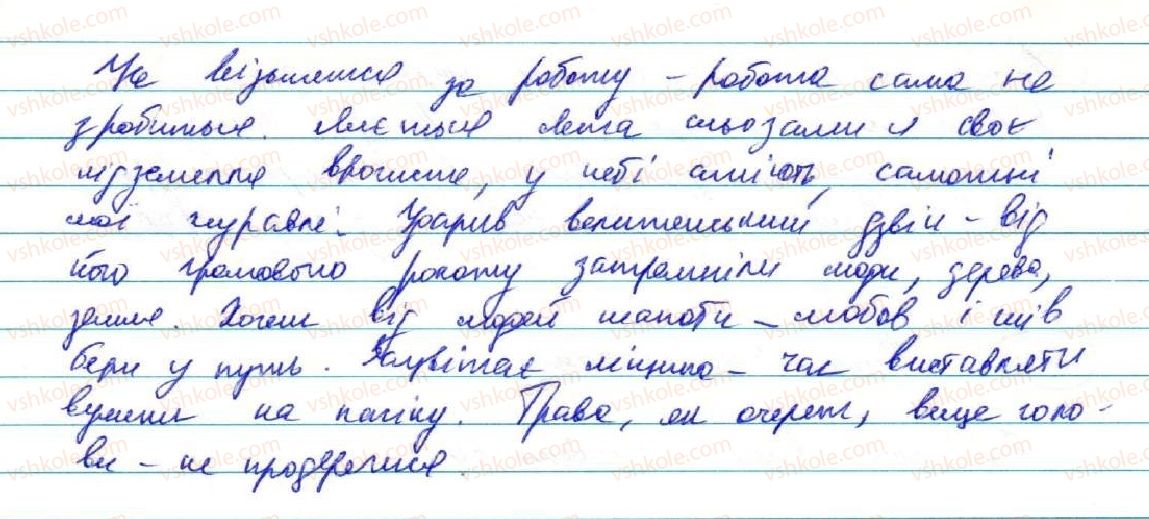 Не візьмешся за роботу – робота сама не
зробиться. Ллється легка сльозами й своє
підземелля врочисте, у небі ячать, самотні
мої журавлі. Ударив велетенський дзвін – від
його громового рокоту затремтіли люди, дерева,
земля. Хочеш від людей шаноти – любов і гнів
бери у путь. Розквітає ліщина – час виставляти
вулики на пасіку. Трава, як очерет, вище голо-
ви – не продерешся.